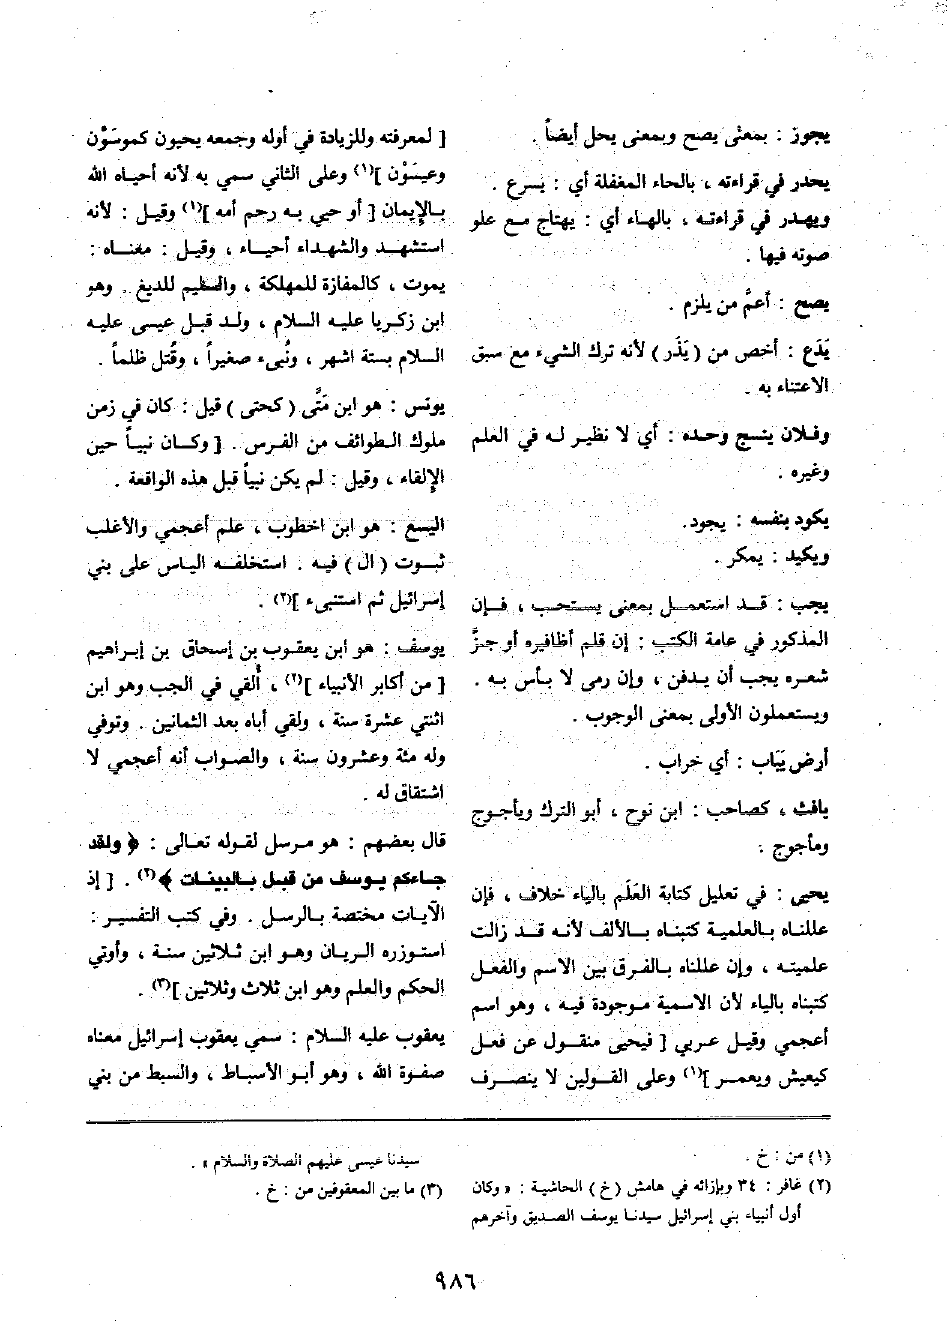 يجوز : بمعنى يصح وبمعنى يحل أيضاً .
يحدر في قراءته ، بالحاء المغفلة أي : يسرع .
ويهدر في قراءته ، بالهاء أي : يهتاج مع علو
صوته فيها .
يصح : أعمّ من يلزم .
يَدَع : أخص من ( يَذَر ) لأنه ترك الشيء مع سبق
الاعتناء به .
وفلان ينسج وحده : أي لا نظير له في العلم
وغيره .
يكود بنفسه : يجود.
ويكيد : يمكر .
يجب : قد استعمل بمعنى يستحب ، فإن
المذكور في عامة الكتب : إن قلم أظافيره أو جزَّ
شعره يجب أن يدفن ، وإن رمى لا بأس به .
ويستعملون الأولى بمعنى الوجوب .
أرض يَبَاب : أي خراب .
يافث ، كصاحب : ابن نوح ، أبو الترك ويأجوج
ومأجوج .
يحيى : في تعليل كتابة العَلَم بالياء خلاف ، فإن
عللناه بالعلمية كتبناه بالألف لأنه قد زالت
علميته ، وإن عللناه بالفرق بين الاسم والفعل
كتبناه بالياء لأن الاسمية موجودة فيه ، وهو اسم
أعجمي وقيل عربي [ فيحيى منقول عن فعل
كيعيش ويعمر ](١) وعلى القولين لا ينصرف
[ لمعرفته وللزيادة في أوله وجمعه يحيون كموسَوْن
وعيسَوْن ](١) وعلى الثاني سمي به لأنه أحياه الله
بالإيمان [ أو حيي به رحم أمه ](١) وقيل : لأنه
استشهد والشهداء أحياء ، وقيل : معناه :
يموت ، كالمفازة للمهلكة ، والسليم للديغ . وهو
ابن زكريا عليه السلام ، ولد قبل عيسى عليه
السلام بستة اشهر ، ونُبيء صغيراً ، وقُتل ظلماً .
يونس : هو ابن مَتَّى ( كحتى ) قيل : كان في زمن
ملوك الطوائف من الفرس . [ وكان نبياً حين
الإلقاء ، وقيل : لم يكن نبياً قبل هذه الواقعة .
اليسع : هو ابن اخطوب ، علم أعجمي والأغلب
ثبوت ( ال ) فيه . استخلفه الياس على بني
إسرائيل ثم استنبىء ](٢) .
يوسف : هو ابن يعقوب بن إسحاق بن إبراهيم
[ من أكابر الأنبياء ](٢) ، أُلقي في الجب وهو ابن
اثنتي عشرة سنة ، ولقي أباه بعد الثمانين . وتوفي
وله مئة وعشرون سنة ، والصواب أنه أعجمي لا
اشتقاق له .
قال بعضهم : هو مرسل لقوله تعالى : ﴿ ولقد
جاءكم يوسف من قبل بالبينات ﴾(٢) . [ إذ
الآيات مختصة بالرسل . وفي كتب التفسير :
استوزره الريان وهو ابن ثلاثين سنة ، وأوتي
الحكم والعلم وهو ابن ثلاث وثلاثين ](٣) .
يعقوب عليه السلام : سمي يعقوب إسرائيل معناه
صفوة الله ، وهو أبو الأسباط ، والسبط من بني
(١) من : خ .
(٢) غافر : ٣٤ وبإزائه في هامش ( خ ) الحاشية : « وكان
أول أنبياء بني إسرائيل سيدنا يوسف الصديق وآخرهم
سيدنا عيسى عليهم الصلاة والسلام » .
(٣) ما بين المعقوفين من : خ .
٩٨٦